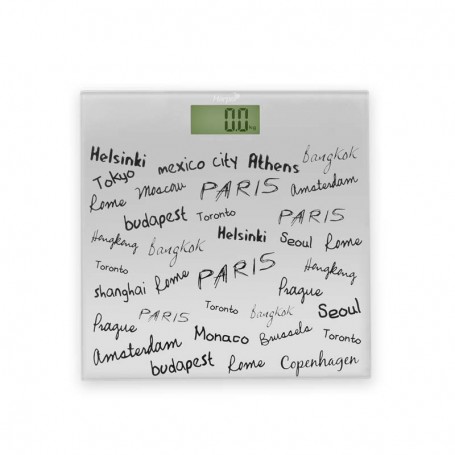 0.0 kg
Helsinki mexico city Athens Bangkok
Tokyo Moscow PARIS Amsterdam
Rome budapest Toronto PARIS
Hengkeng Bangkok Helsinki Seoul Rome
Toronto Rome PARIS Hengkeng
shanghai Toronto Bangkok Prague
Prague PARIS Monaco Brussels Seoul
Amsterdam Toronto
budapest Rome Copenhagen